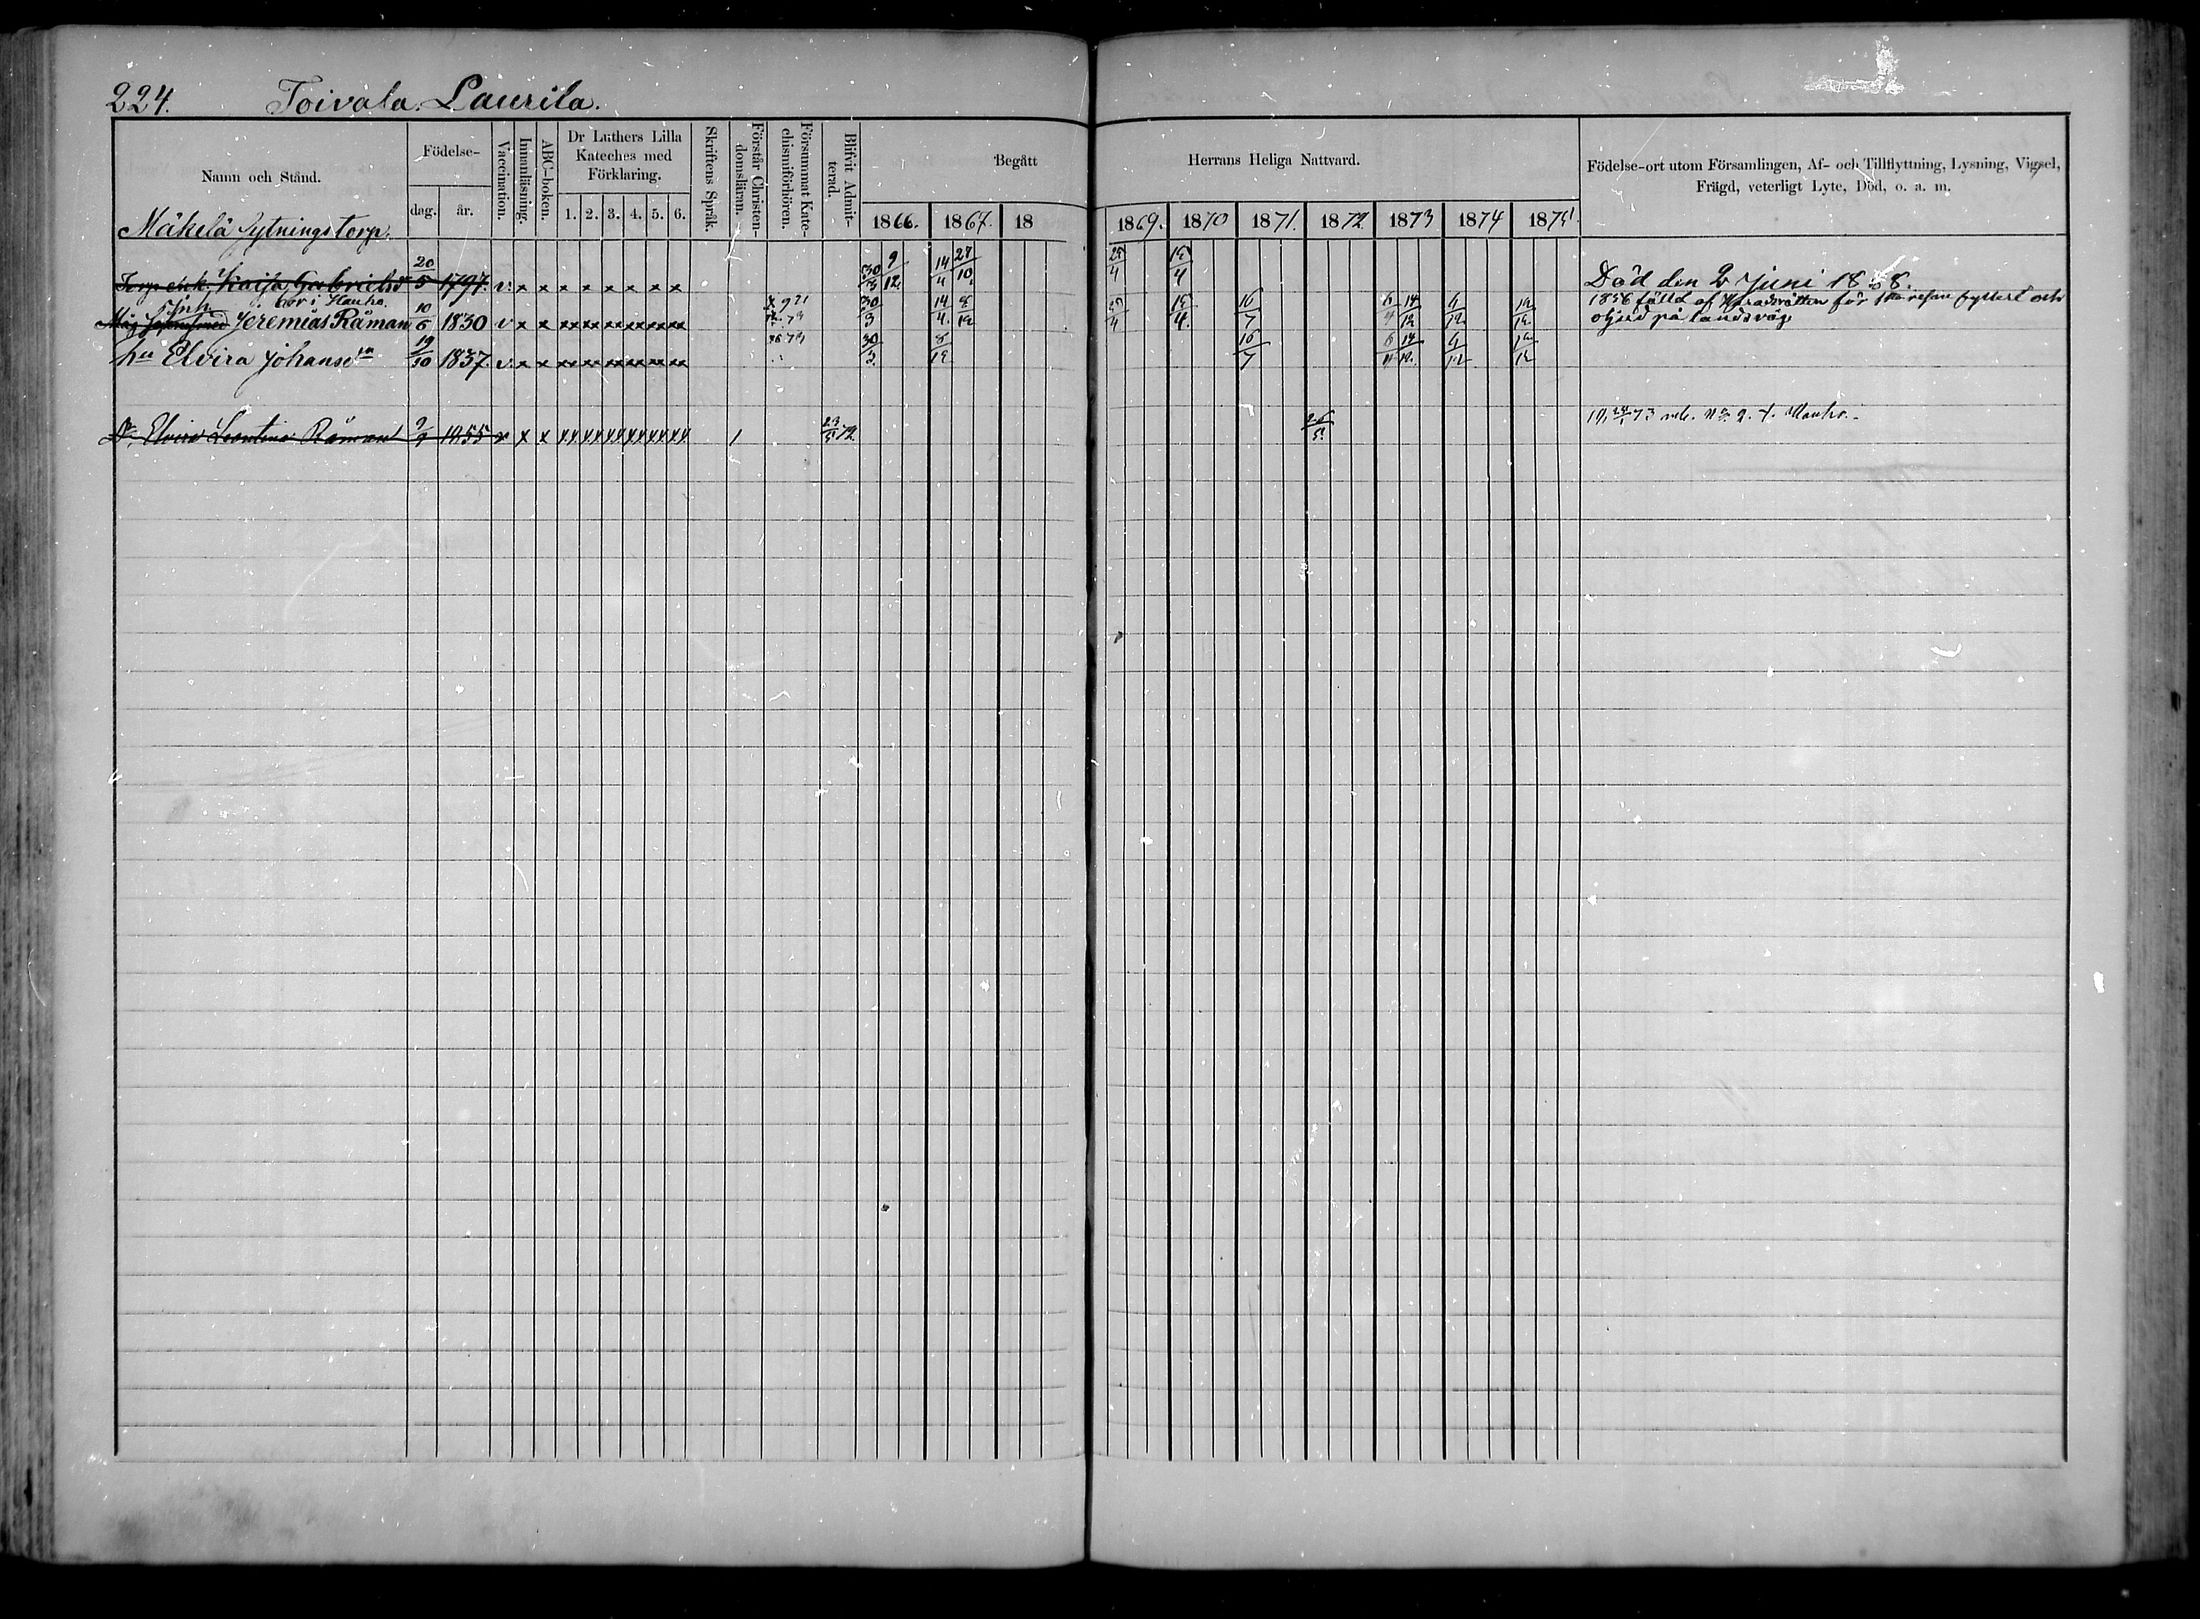 224. Toivala. Laurila.
Namn och Stånd.
Födelse-
dag.
år.
Vaccination.
Innanläsning.
ABC-boken.
Dr Luthers Lilla
Kateches med
Förklaring.
1. 2. 3. 4. 5. 6.
Skriftens Språk.
Förstår Christen-
domsläran.
Försummat Kate-
chismiförhören.
Blifvit Admit-
terad.
Begått Herrans Heliga Nattvard.
1866. 1867. 18 1869. 1870 1871. 1872 1873 1874 1875
Födelse-ort utom Församlingen, Af- och Tillflyttning, Lysning, Vigsel,
Frägd, veterligt Lyte, Död, o. a. m.
Mäkelä Sytningstorp.
Torp enk. Kaisa Gabrielsd 20/5 1797. v. x x x x x x x x 30/3 9/12. 14/4 27/10. 25/4 15/4 Död den 2 Juni 18
Inh. bor i Hauho.
Måg Jeremias Råman 10/5 1830 v x x xx xx xx xx xx xx 30/3 14/4. 8/12 25/4 15/4. 16/7 6/4 14/12 6/12. 12/12. 1856 fälld af Häradsrätten för 1sta resan fylleri och
oljud på landsväg
hu Elvira Johansdtr 19/10 1837. v. x x xx xx xx xx xx xx 30/3. 8/12 16/7 6/4 14/12. 6/12 12/12
Dr. Elvira Leontina Råman 9/9 1855 v x x xx xx xx xx xx xx 1 23/5 72. 26/5. 73 Hauho.